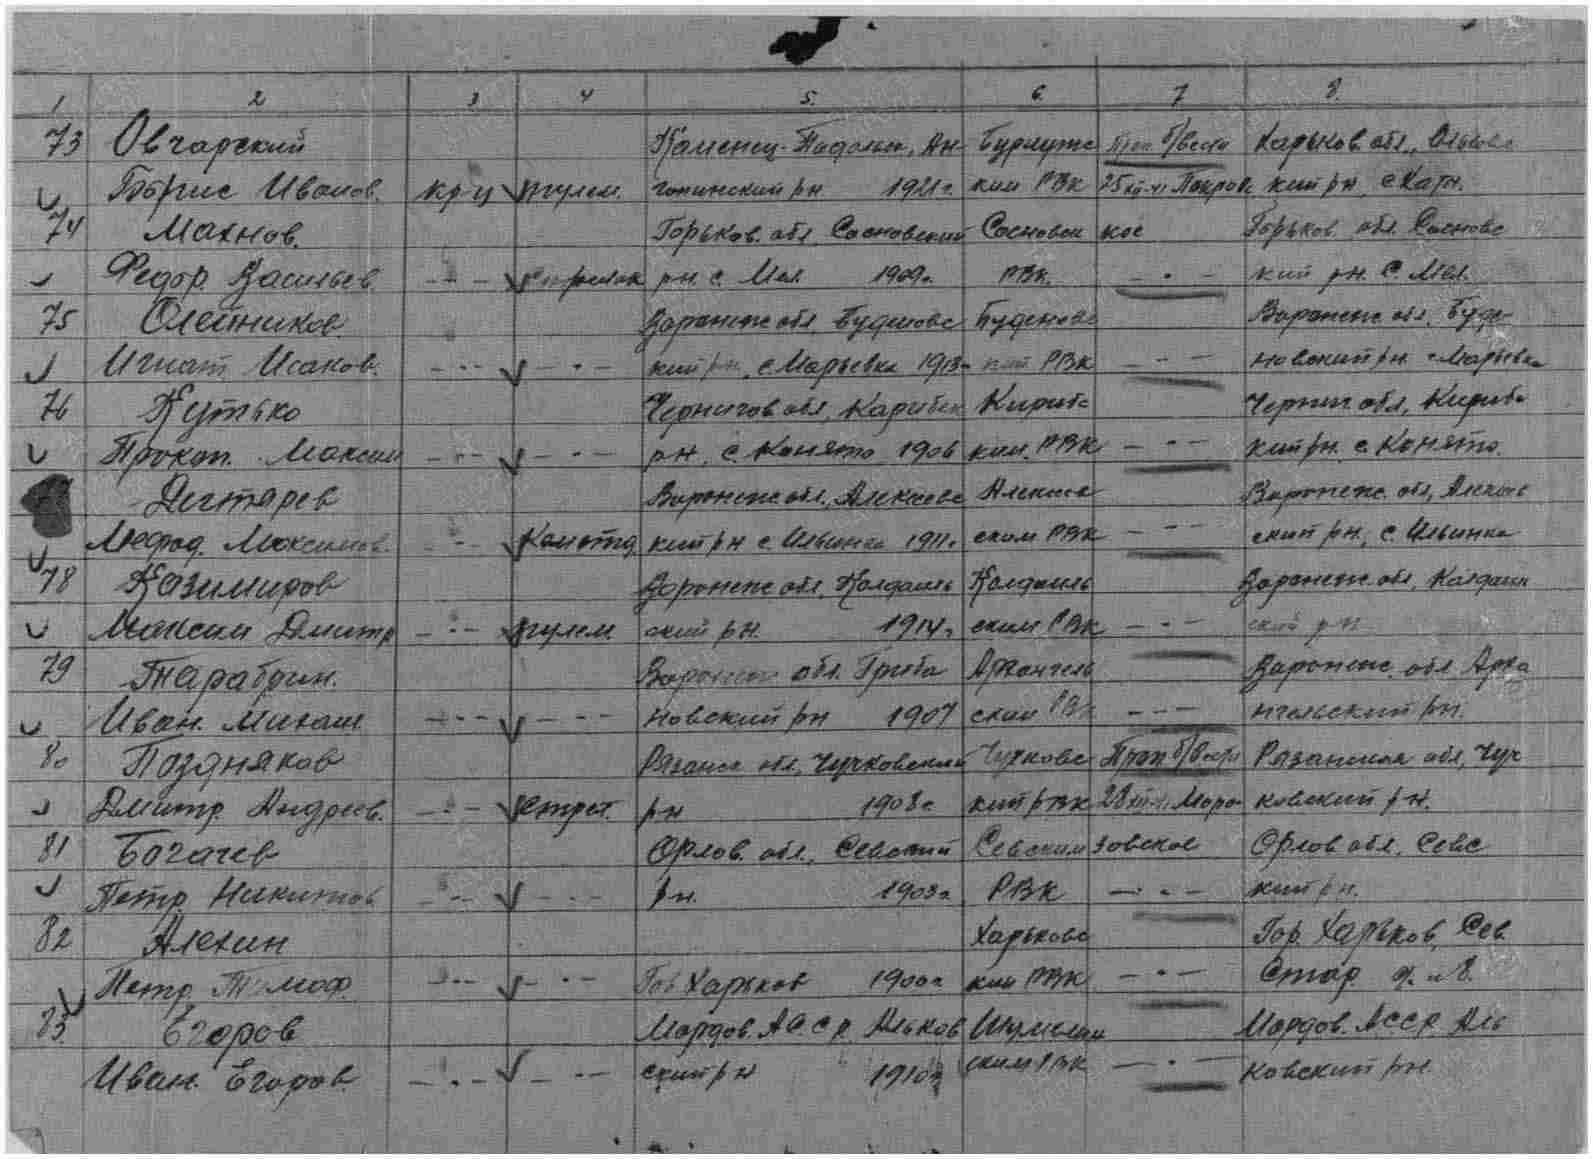 1 2 3 4 5. 6. 7 8.
73 Овчарский Каменец-Подольск, Ан- Буриутс Проп б/вести Харьков обл., Ольховс
Борис Иванов. кр-ц пулем. нопинский рн 1921г. ким РВК 25 Покров кий рн, с
74 Махнов. Горьков. обл. Сосновский Сосновск кое Горьков обл. Сосновс
Федор Васильев. -"- Стрелок рн. с. Мел. 1909г. РВК. -"- кий рн. с. Мел.
75 Олейников Воронеж обл, Буденовс Буденовс Воронеж обл, Буде-
Игнат Исаков. -"- -"- кий рн, с. Марьевка 1913г. ким РВК -"- новский рн. с Марьевка
76 Кутько Чернигов обл, Карибск Кириб Черниг обл, Кириб
Прокоп. Максим -"- -"- рн. с. Конято 1906 ким. РВК -"- кий рн. с. Конято.
Дегтярев Воронеж обл, Алексеевс Алексее Воронеж. обл, Алексе
Мефод. Максимов. -"- Комотд кий рн с. Ильинка 1911г. ским РВК -"- ский рн., с. Ильинка
78 Казимиров Воронеж обл, Колдаиль Колдаиль Воронеж. обл, Колдаил
Максим Дмитр -"- пулем. ский рн. 1914г. ским РВК -"- ский рн
79 Тарабрин. Воронеж обл. Гриба Архангель Воронеж. обл Арха
Иван. Михаил. -"- -"- новский рн 1907 ским РВК -"- нгельский рн.
80 Поздняков Рязанск обл, Чучковский Чучковс Проп б/вести Рязанская обл, Чуч
Дмитр Андреев. -"- Стрел. рн 1908г. кий РВК 28 Моро- ковский рн.
81 Богачев Орлов. обл., Севский Севским зовское Орлов обл. Севс
Петр Никитов -"- -"- рн. 1903г. РВК -"- кий рн.
82 Алехин Харьковс Гор. Харьков, Сев.
Петр Тимоф. -"- -"- Гор Харьков 1900г. ким РВК -"- Стар
83 Егоров Мордов. АССР. Альков Мордов. АССР Аль
Иван. Егоров. -"- -"- ский рн 1910г. ским РВК -"- ковский рн.